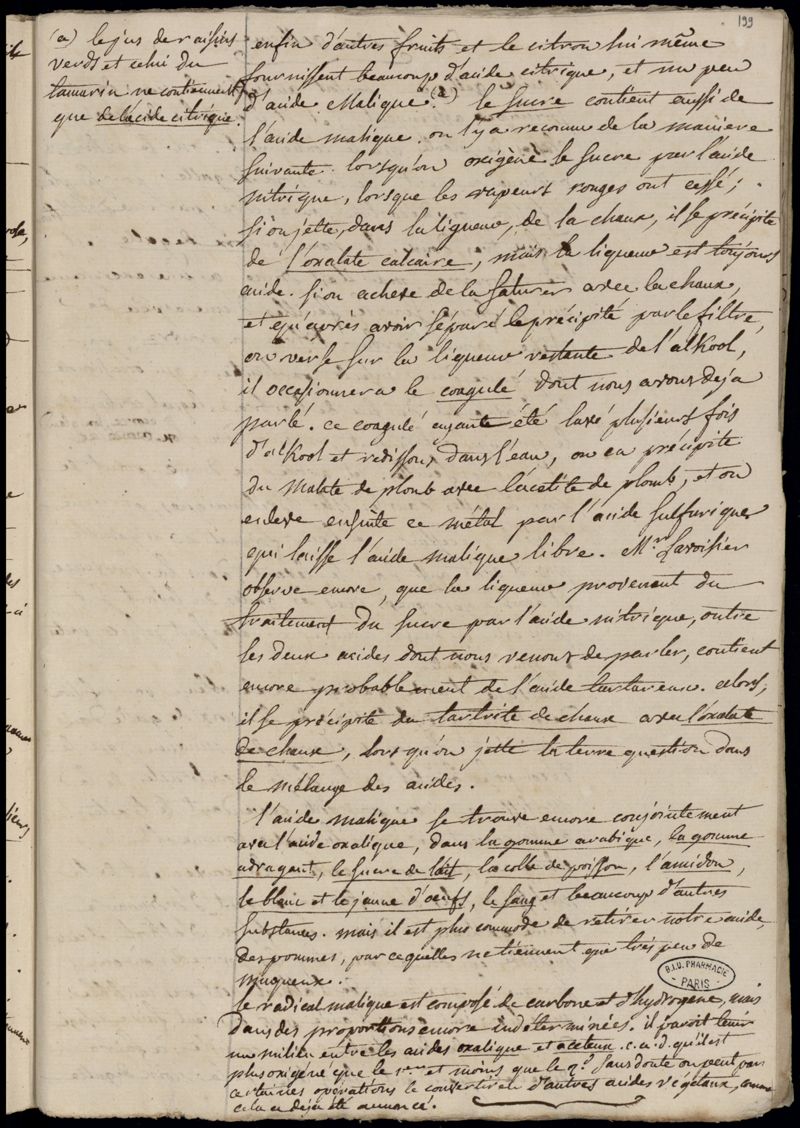 199
(a) le jus de raisins
verds et celui du
tamarin ne contiennent
que de l'acide citrique.
enfin d'autres fruits et le citron lui même
fournissent beaucoup d'acide citrique, et un peu
d'acide Malique. (a) le sucre contient aussi de
l'acide malique. on l'y a reconnu de la maniere
suivante. lorsqu'on oxigène le sucre par l'acide
nitrique, lorsque les vapeurs rouges ont cessé;
si on jette, dans la liqueur, de la chaux, il se précipite
de l'oxalate calcaire, mais la liqueur est toujours
acide. si on acheve de la saturer avec la chaux,
et qu'après avoir séparé le précipité par le filtre,
on verse sur la liqueur restante de l'alkool,
il occasionnera le coagulé dont nous avons deja
parlé. ce coagulé ayant été lavé plusieurs fois
d'alkool et redissous dans l'eau, on en précipite
du malate de plomb avec l'acétite de plomb, et on
enleve ensuite ce métal par l'acide sulfurique
qui laisse l'acide malique libre. Mr. Lavoisier
observe encore, que la liqueur provenant du
traitement du sucre par l'acide nitrique, outre
les deux acides dont nous venons de parler, contient
encore probablement de l'acide tartareux. alors,
il se précipite du tartrite de chaux avec l'oxalate
de chaux, lorsqu'on jette la terre question dans
le mélange des acides.
l'acide malique se trouve encore conjointement
avec l'acide oxalique, dans la gomme arabique, la gomme
adragant, le sucre de lait, la colle de poisson, l'amidon,
le blanc et le jaune d'œufs, le sang et beaucoup d'autres
substances. mais il est plus commode de retirer notre acide,
des pommes, parce qu'elles ne tiennent que très peu de
muqueux.
B.I.U. PHARMACIE
PARIS
le radical malique est composé de carbone et d'hydrogene, mais
dans des proportions encore indéterminées. il paroit tenir
un milieu entre les acides oxalique et aceteux. c. a. d. qu'il est
plus oxigéné que le 1er et moins que le 2d. sans doute on peut par
certaines opérations le convertir en d'autres acides végétaux, comme
cela a deja été annoncé.